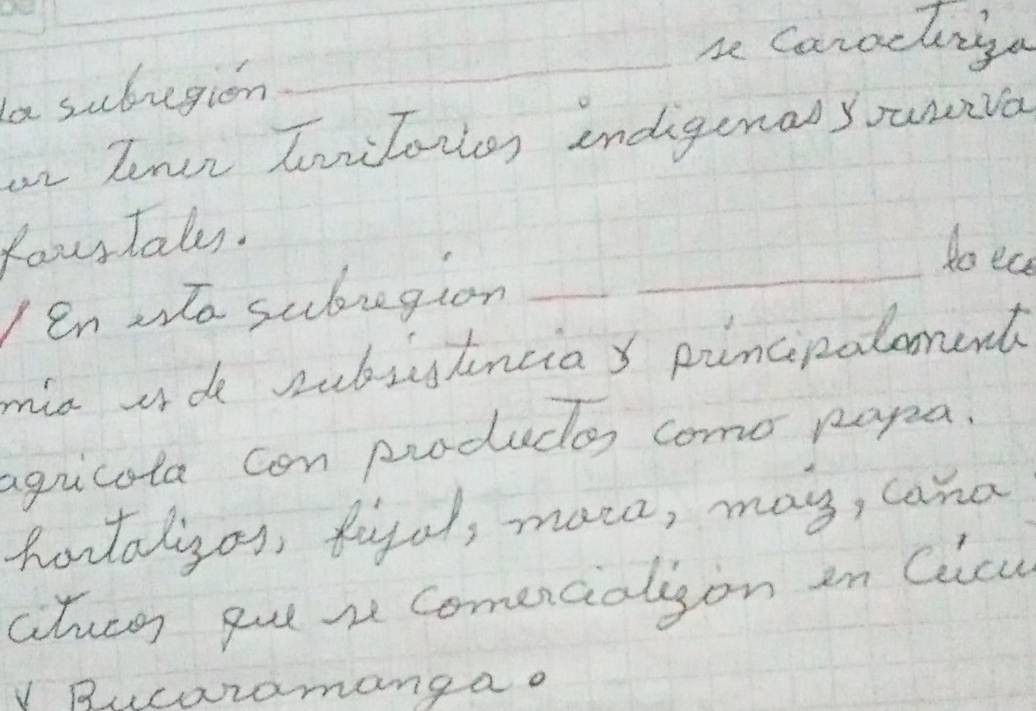 la subregión __________ se caracteriza
or tener territorios indigenas y reserva
forestales.
En esta subregion __ __________ la eco
mia es de subsistencia y principalmente
agricola con productos como papa.
hortalizas, frijol, mora, maiz, caña
citricos que se comercializan en Cúcu
y Bucaramanga.